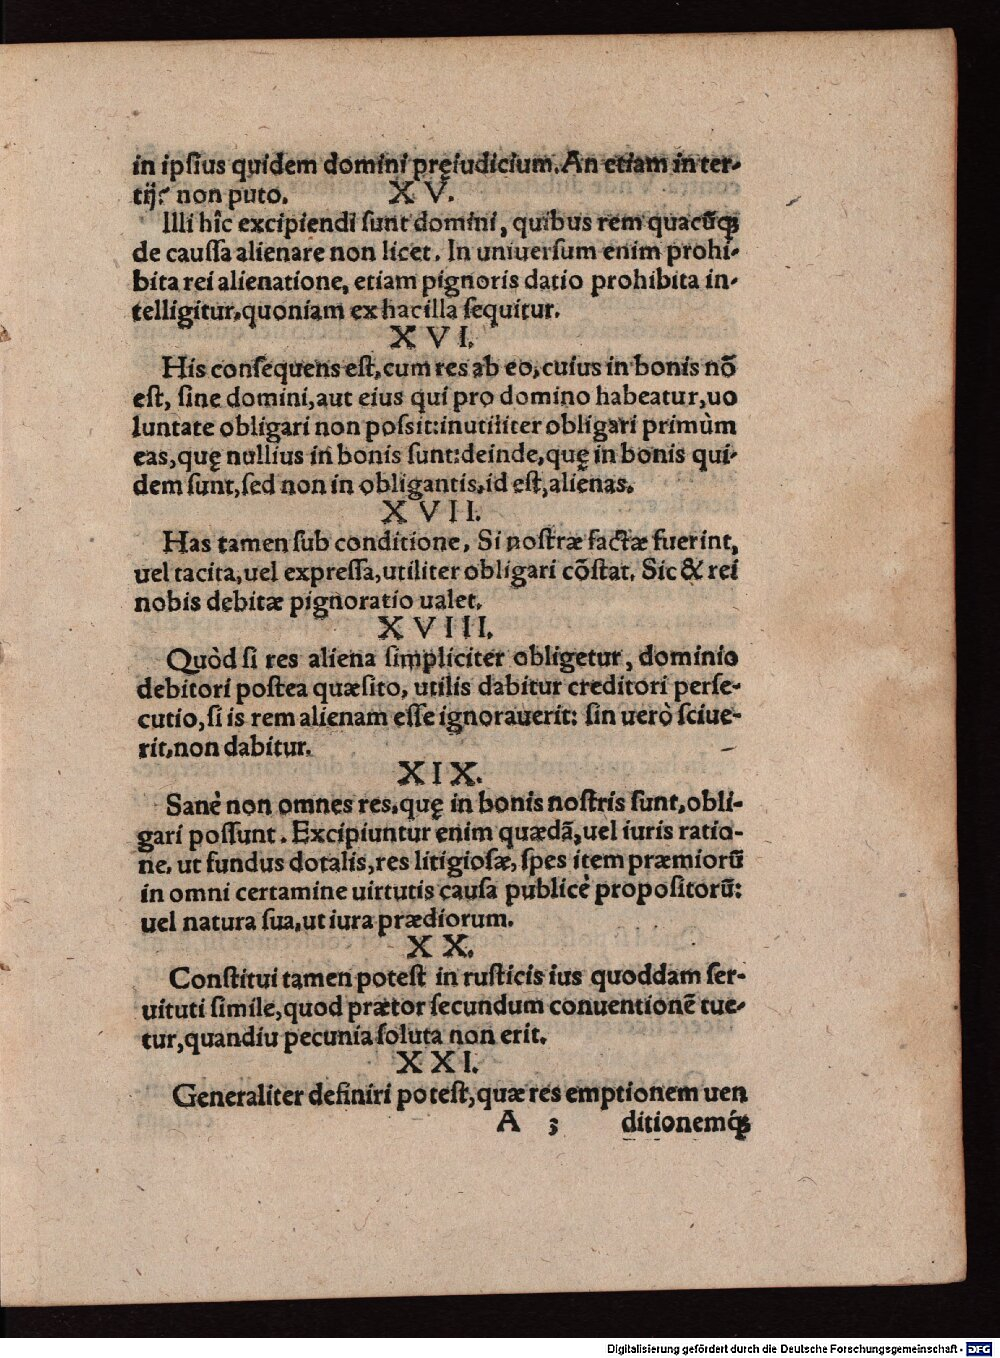 in ipsius quidem domini pręiudicium. An etiam in ter-
tij? non puto. XV.
Illi hîc excipiendi sunt domini, quibus rem quacũq;
de caussa alienare non licet. In uniuersum enim prohi-
bita rei alienatione, etiam pignoris datio prohibita in-
telligitur, quoniam ex hac illa sequitur.
XVI.
His consequens est, cum res ab eo, cuius in bonis nõ
est, sine domini, aut eius qui pro domino habeatur, uo
luntate obligari non possit: inutiliter obligari primùm
eas, quę nullius in bonis sunt: deinde, quę in bonis qui-
dem sunt, sed non in obligantis, id est, alienas.
XVII.
Has tamen sub conditione, Si nostræ factæ fuerint,
uel tacita, uel expressa, utiliter obligari cõstat. Sic & rei
nobis debitæ pignoratio ualet.
XVIII.
Quòd si res aliena simpliciter obligetur, dominio
debitori postea quæsito, utilis dabitur creditori perse-
cutio, si is rem alienam esse ignorauerit: sin uerò sciue-
rit, non dabitur.
XIX.
Sanè non omnes res, quę in bonis nostris sunt, obli-
gari possunt. Excipiuntur enim quædã, uel iuris ratio-
ne, ut fundus dotalis, res litigiosæ, spes item præmiorũ
in omni certamine uirtutis causa publicè propositorũ:
uel natura sua, ut iura prædiorum.
XX.
Constitui tamen potest in rusticis ius quoddam ser-
uituti simile, quod prætor secundum conuentionẽ tue-
tur, quandiu pecunia soluta non erit.
XXI.
Generaliter definiri potest, quæ res emptionem uen
A 3 ditionemq́;
Digitalisierung gefördert durch die Deutsche Forschungsgemeinschaft - DFG